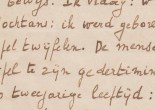 bewijs. Ik vraag: w
ochtans: ik werd gebore
fel twijfelen. De mense
fel te zijn gedetermine
tweejarige leeftijd: